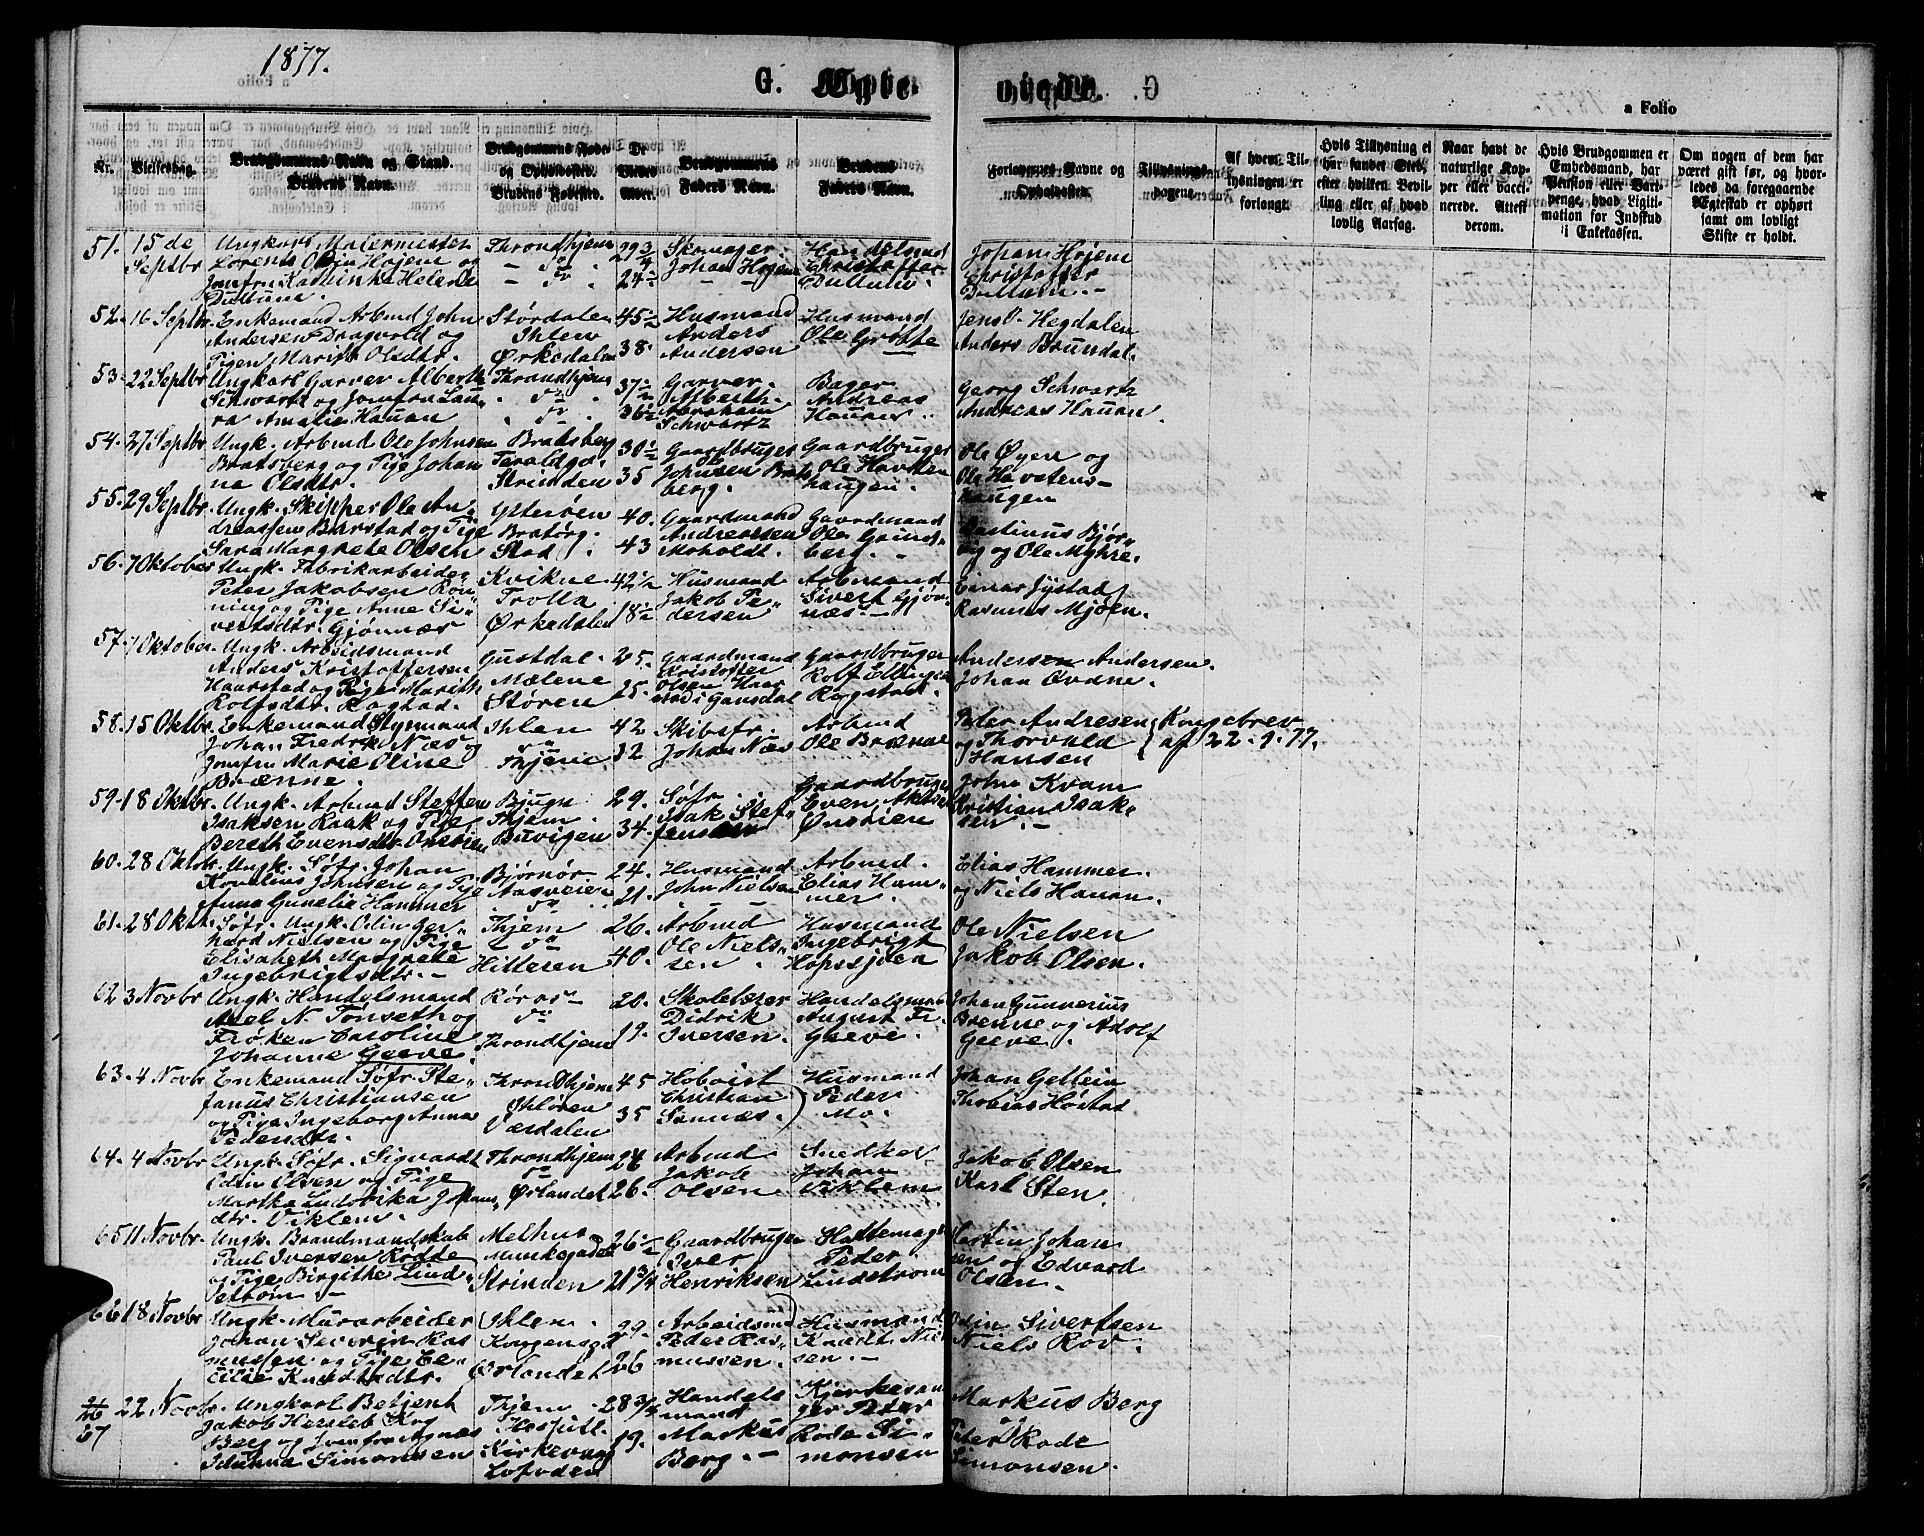 1877.
G. Egte- viede.
a Folio
Nr.
Vielsesdag.
Brudgommens Navn og Stand.
Brudens Navn.
Brudgommens Føde-
og Opholdssted.
Brudens Fødested.
Brudgommens
Faders Navn.
Brudens
Faders Navn.
Forlovernes Navne og
Opholdssted.
Tillysnings-
dagene.
Af hvem Til-
lysningen er
forlangt.
Hvis Tillysning ei
har fundet Sted,
efter hvilken Bevil-
ling eller af hvad
lovlig Aarsag.
Naar havt de
naturlige Kop-
per eller vacci-
nerede. Attest
derom.
Hvis Brudgommen er
Embedsmand, har
Pension eller Vart-
penge, hvad Ligiti-
mation for Indskud
i Enkekassen.
Om nogen af dem har
været gift før, og hvor-
ledes da foregaaende
Ægteskab er ophørt
samt om lovligt
Skifte er holdt.
51. 15 de Septbr
Ungkarl Malermester
Lorents Odin Højem og
Jomfru Kathinka Helene
Throndhjem
29 3/4
24
Skomager
Johan Højem
Handelsmd
Christoffer
Johan Højem
Christoffer
52. 16 Septbr.
Enkemand Arbmd John
Andersen Dragvold og
Pigen Marith Olsdtr.
Størdalen
Ihlen
Ørkedalen
45 1/2
38.
Husmand
Anders
Andersen
Husmand
Ole Grøtte
Jens O. Hegdalen
Anders Brundal.
53. 22 Septbr
Ungkarl Garver Alberth
Schwartz og Jomfru Lau-
ra Amalie Hauan
Throndhjem
37 1/2
36 1/2
Garver
Alberth
Abraham
Schwartz
Bager
Andreas
Hauan
Georg Schwartz
Andreas Hauan.
54. 27 Septbr
Ungk. Arbmd Ole Johnsen
Bratsberg og Pige Johan
na Olsdtr.
Bratsberg
Strinden
30 1/2
35
Gaardbruger
Ole
Johnsen Brats
berg.
Gaardbruger
Ole Havsten
haugen.
Ole Øyen og
Ole Havstens-
haugen
55. 29 Septbr.
Ungk. Skipper Ole An-
dreassen Barstad og Pige
Sara Margrete Olsen
Ytterøen
Bratørg.
Stod
40.
43
Gaardmand
Andreassen
Moholdt.
Gaardmand
Ole Grind-
berg.
Bjør-
vig og Ole Myhre.
56. 7 Oktober
Ungk. Fabrikarbeider
Peter Jakobsen Røn-
ning og Pige Anne Si-
vertsdtr. Gjønnæs
Kvikne
Trolla
Ørkedalen
42 1/2
18 1/2
Husmand
Jakob Pe-
dersen
Arbmand
Sivert Gjøn-
næs.
Einar Jystad
Rasmus Mjøen.
57. 7 Oktober.
Ungk. Arbeidsmand
Anders Kristoffersen
Haarstad og Pige Marith
Rolfsdtr. Rogstad.
Mælene
Støren
25.
25.
Gaardmand
Kristoffer
Olsen Haar
stad i
Gaardbruger
Rolf Ellingsen
Rogstad.
Andersen Andersen.
Johan Øvdne.
58. 15 Oktbr.
Enkemand Styrmand
Johan Fredrik Næs og
Jomfru Marie Oline
Brænne.
Ihlen
Thjem
42
32
Skibsfr.
Johan Næs
Arbmd
Ole Brænne
Peter Andresen
og Thorvald
Hansen
Kongebrev
af 22-9-77.
59. 18 Oktbr.
Ungk. Arbmd Steffen
Isaksen Raak og Pige
Bereth Evensdtr. Onsøien
Bjugn
Thjem.
Buvigen
29.
34.
Søfr.
Isak Stef-
fensen
Gaardbruger
Even
Onsøien
John Kvam
Kristian Isak-
sen.
60. 28 Oktbr.
Ungk. Søfr. Johan
Kornelius Johnsen og Pige
Anna Gunelia Hammer
Bjørnør
Aasveien
24.
21.
Husmand
John Nielsen
Arbmd.
Elias Ham-
mer.
Elias Hammer.
og Niels Hanan.
61. 28 Okt.
Søfr. Ungk. Odin Ger-
hard Nielsen og Pige
Elisabeth Margrete
Ingebrigtsdtr.
Thjem
Hitteren
26.
40.
Arbmd
Ole Niels-
sen.
Husmand
Ingebrigt
Hopssjøen
Ole Nielsen
Jakob Olsen.
62 3 Novbr
Ungk. Handelsmand
Axel N. Tønseth og
Frøken Caroline
Johanne Greve.
Røros
Throndhjem
20.
19.
Skolelærer
Didrik
Iversen.
Handelsmand
August Fr.
Greve.
Johan Gunnerius
Brenne og Adolf
Greve.
63. 4 Novbr
Enkemand Søfr. Ste-
fanus Christiansen
og Pige Ingeborg Anna
Pedersdtr.
Throndhjem
Ihløren
Værdalen
45
35
Christian
Husmand
Peder
Mo.
Johan Gellein
Thobias Høstad
64. 4 Novbr
Ungk. Søfr. Sigvardt
Edin Olsen og Pige
Martha Ludovika Johans-
dtr. Viklem.
Throndhjem
Ørlandet
26.
Arbmd
Jakob
Olsen.
Snedker
Johan
Viklem
Jakob Olsen
Karl Sten.
65 11 Novbr.
Ungk. Brandmandskab
Paul Iversen Rødde
og Pige Birgithe Lind-
strøm.
Melhus
Munkegaden
Strinden
26 1/2
21 3/4
Gaardbruger
Iver
Henriksen
Hattemager
Peter
Lindstrøm
Martin Johan
sen og Edvard
Olsen.
66 18 Novbr
Ungk. Murarbeider
Johan Severin Ras
mussen og Pige Ce-
cilie Knudtsdtr.
Ihlen
Kongensgd
Ørlandet
29.
26
Arbeidsmd
Peder Ras-
mussen.
Husmand
Knudt Niel
sen.
Odin Sivertsen
Niels Rov.
67 22 Novbr.
Ungkarl Betjent
Jakob Hersleb Krog
Berg og Jomfru Agnes
Idunna Simonsen
Thjem
Hospitl.
Kirkevaag
Lofoden
28 3/4
19.
Handels
mand
Markus
Berg.
Kirkesan
ger Peter
Rode Si-
monsen
Markus Berg
og
Peter Rode
Simonsen.